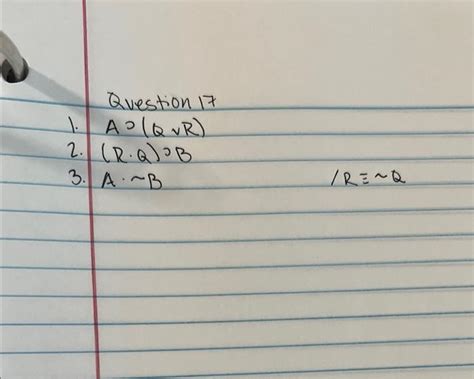 Question 17
1. A ⊃ (Q ∨ R)
2. (R · Q) ⊃ B
3. A · ~B / R ≡ ~Q